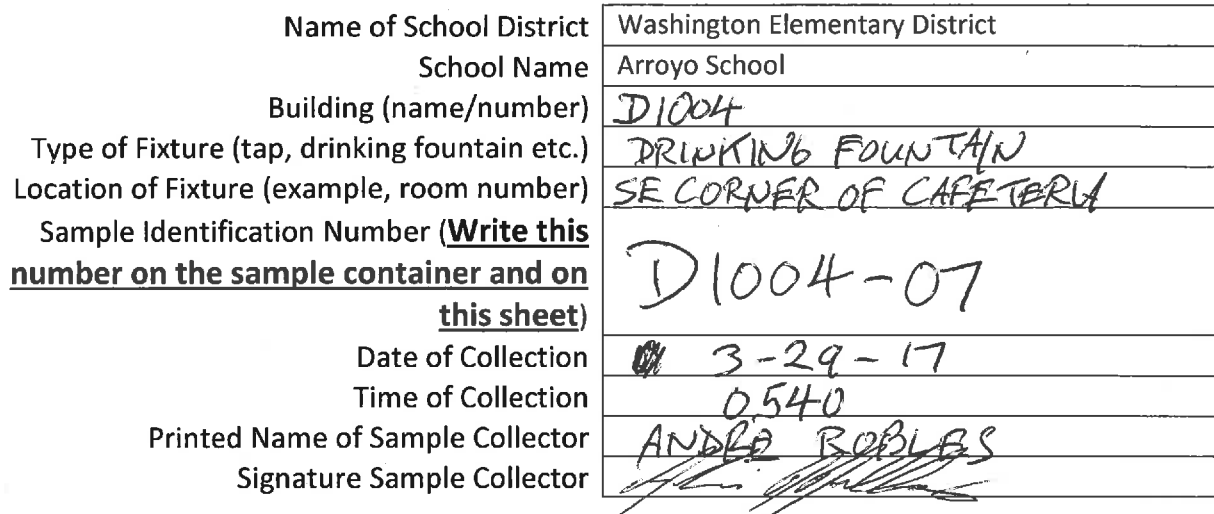 Name of School District Washington Elementary District
School Name Arroyo School
Building (name/number) D1004
Type of Fixture (tap, drinking fountain etc.) DRINKING FOUNTAIN
Location of Fixture (example, room number) SE CORNER OF CAFETERIA
Sample Identification Number (Write this
number on the sample container and on
this sheet) D1004-07
Date of Collection 3-29-17
Time of Collection 0540
Printed Name of Sample Collector ANDRE ROBLES
Signature Sample Collector